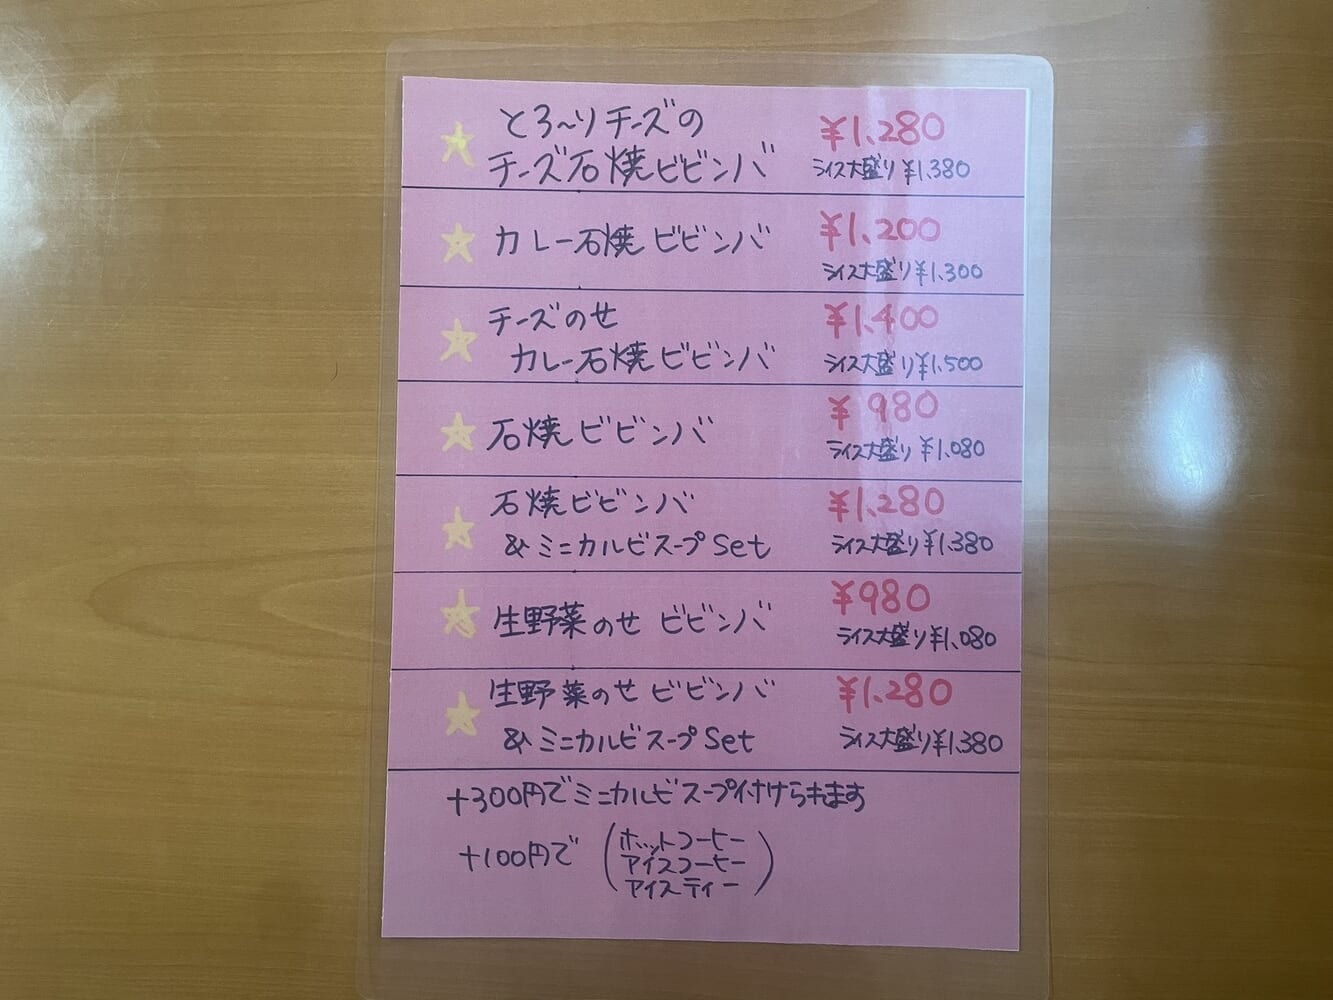 とろ〜りチーズの ¥1,280
チーズ石焼ビビンバ ライス大盛り¥1,380
カレー石焼ビビンバ ¥1,200
ライス大盛り¥1,300
チーズのせ ¥1,400
カレー石焼ビビンバ ライス大盛り¥1,500
石焼ビビンバ ¥980
ライス大盛り¥1,080
石焼ビビンバ ¥1,280
&ミニカルビスープSet ライス大盛り¥1,380
生野菜のせ ビビンバ ¥980
ライス大盛り¥1,080
生野菜のせ ビビンバ ¥1,280
&ミニカルビスープSet ライス大盛り¥1,380
+300円でミニカルビスープ付けられます
+100円で(ホットコーヒー
アイスコーヒー
アイスティー)